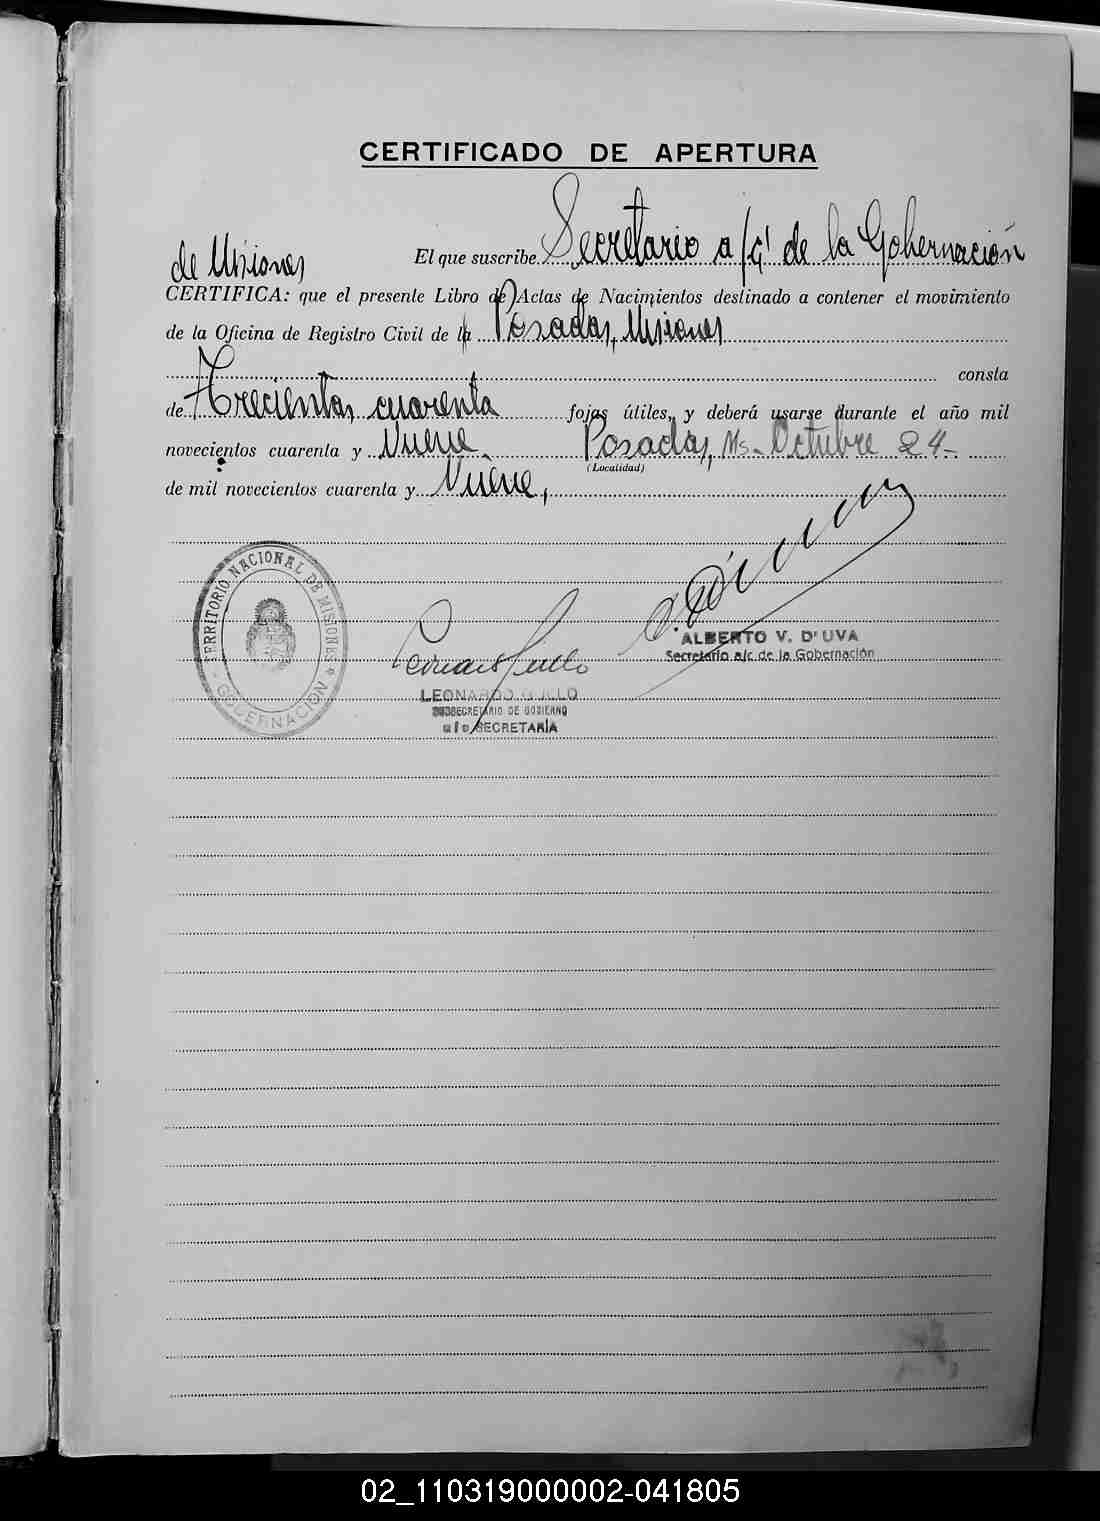 CERTIFICADO DE APERTURA
El que suscribe Secretario a/c' de la Gobernación
de Misiones
CERTIFICA: que el presente Libro de Actas de Nacimientos destinado a contener el movimiento
de la Oficina de Registro Civil de la Posadas, Misiones
consta
de Trecientas cuarenta fojas útiles, y deberá usarse durante el año mil
novecientos cuarenta y Nueve. Posadas, Ms. Octubre 24-
(Localidad)
de mil novecientos cuarenta y Nueve,
TERRITORIO NACIONAL DE MISIONES
GOBERNACION
ALBERTO V. D'UVA
Secretario a/c de la Gobernación
LEONARDO GULLO
SUBSECRETARIO DE GOBIERNO
a/c SECRETARIA
02_110319000002-041805